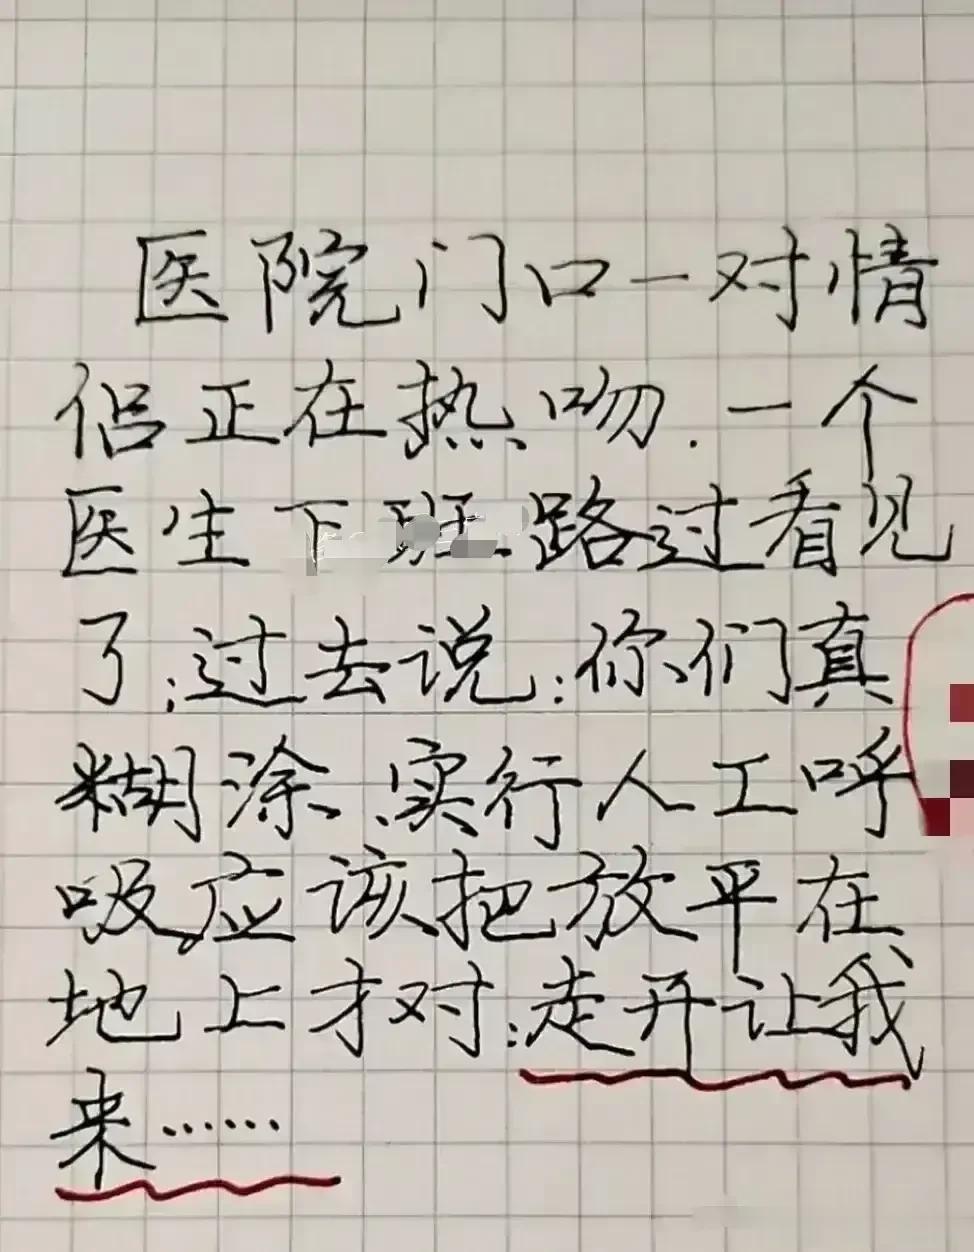 医院门口一对情
侣正在热吻.一个
医生下班路过看见
了;过去说:你们真
糊涂、实行人工呼
吸,应该把放平在
地上才对;走开让我
来……